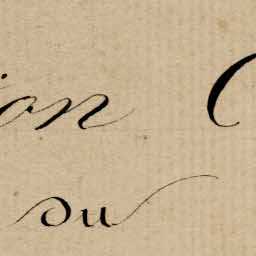 ion C
du